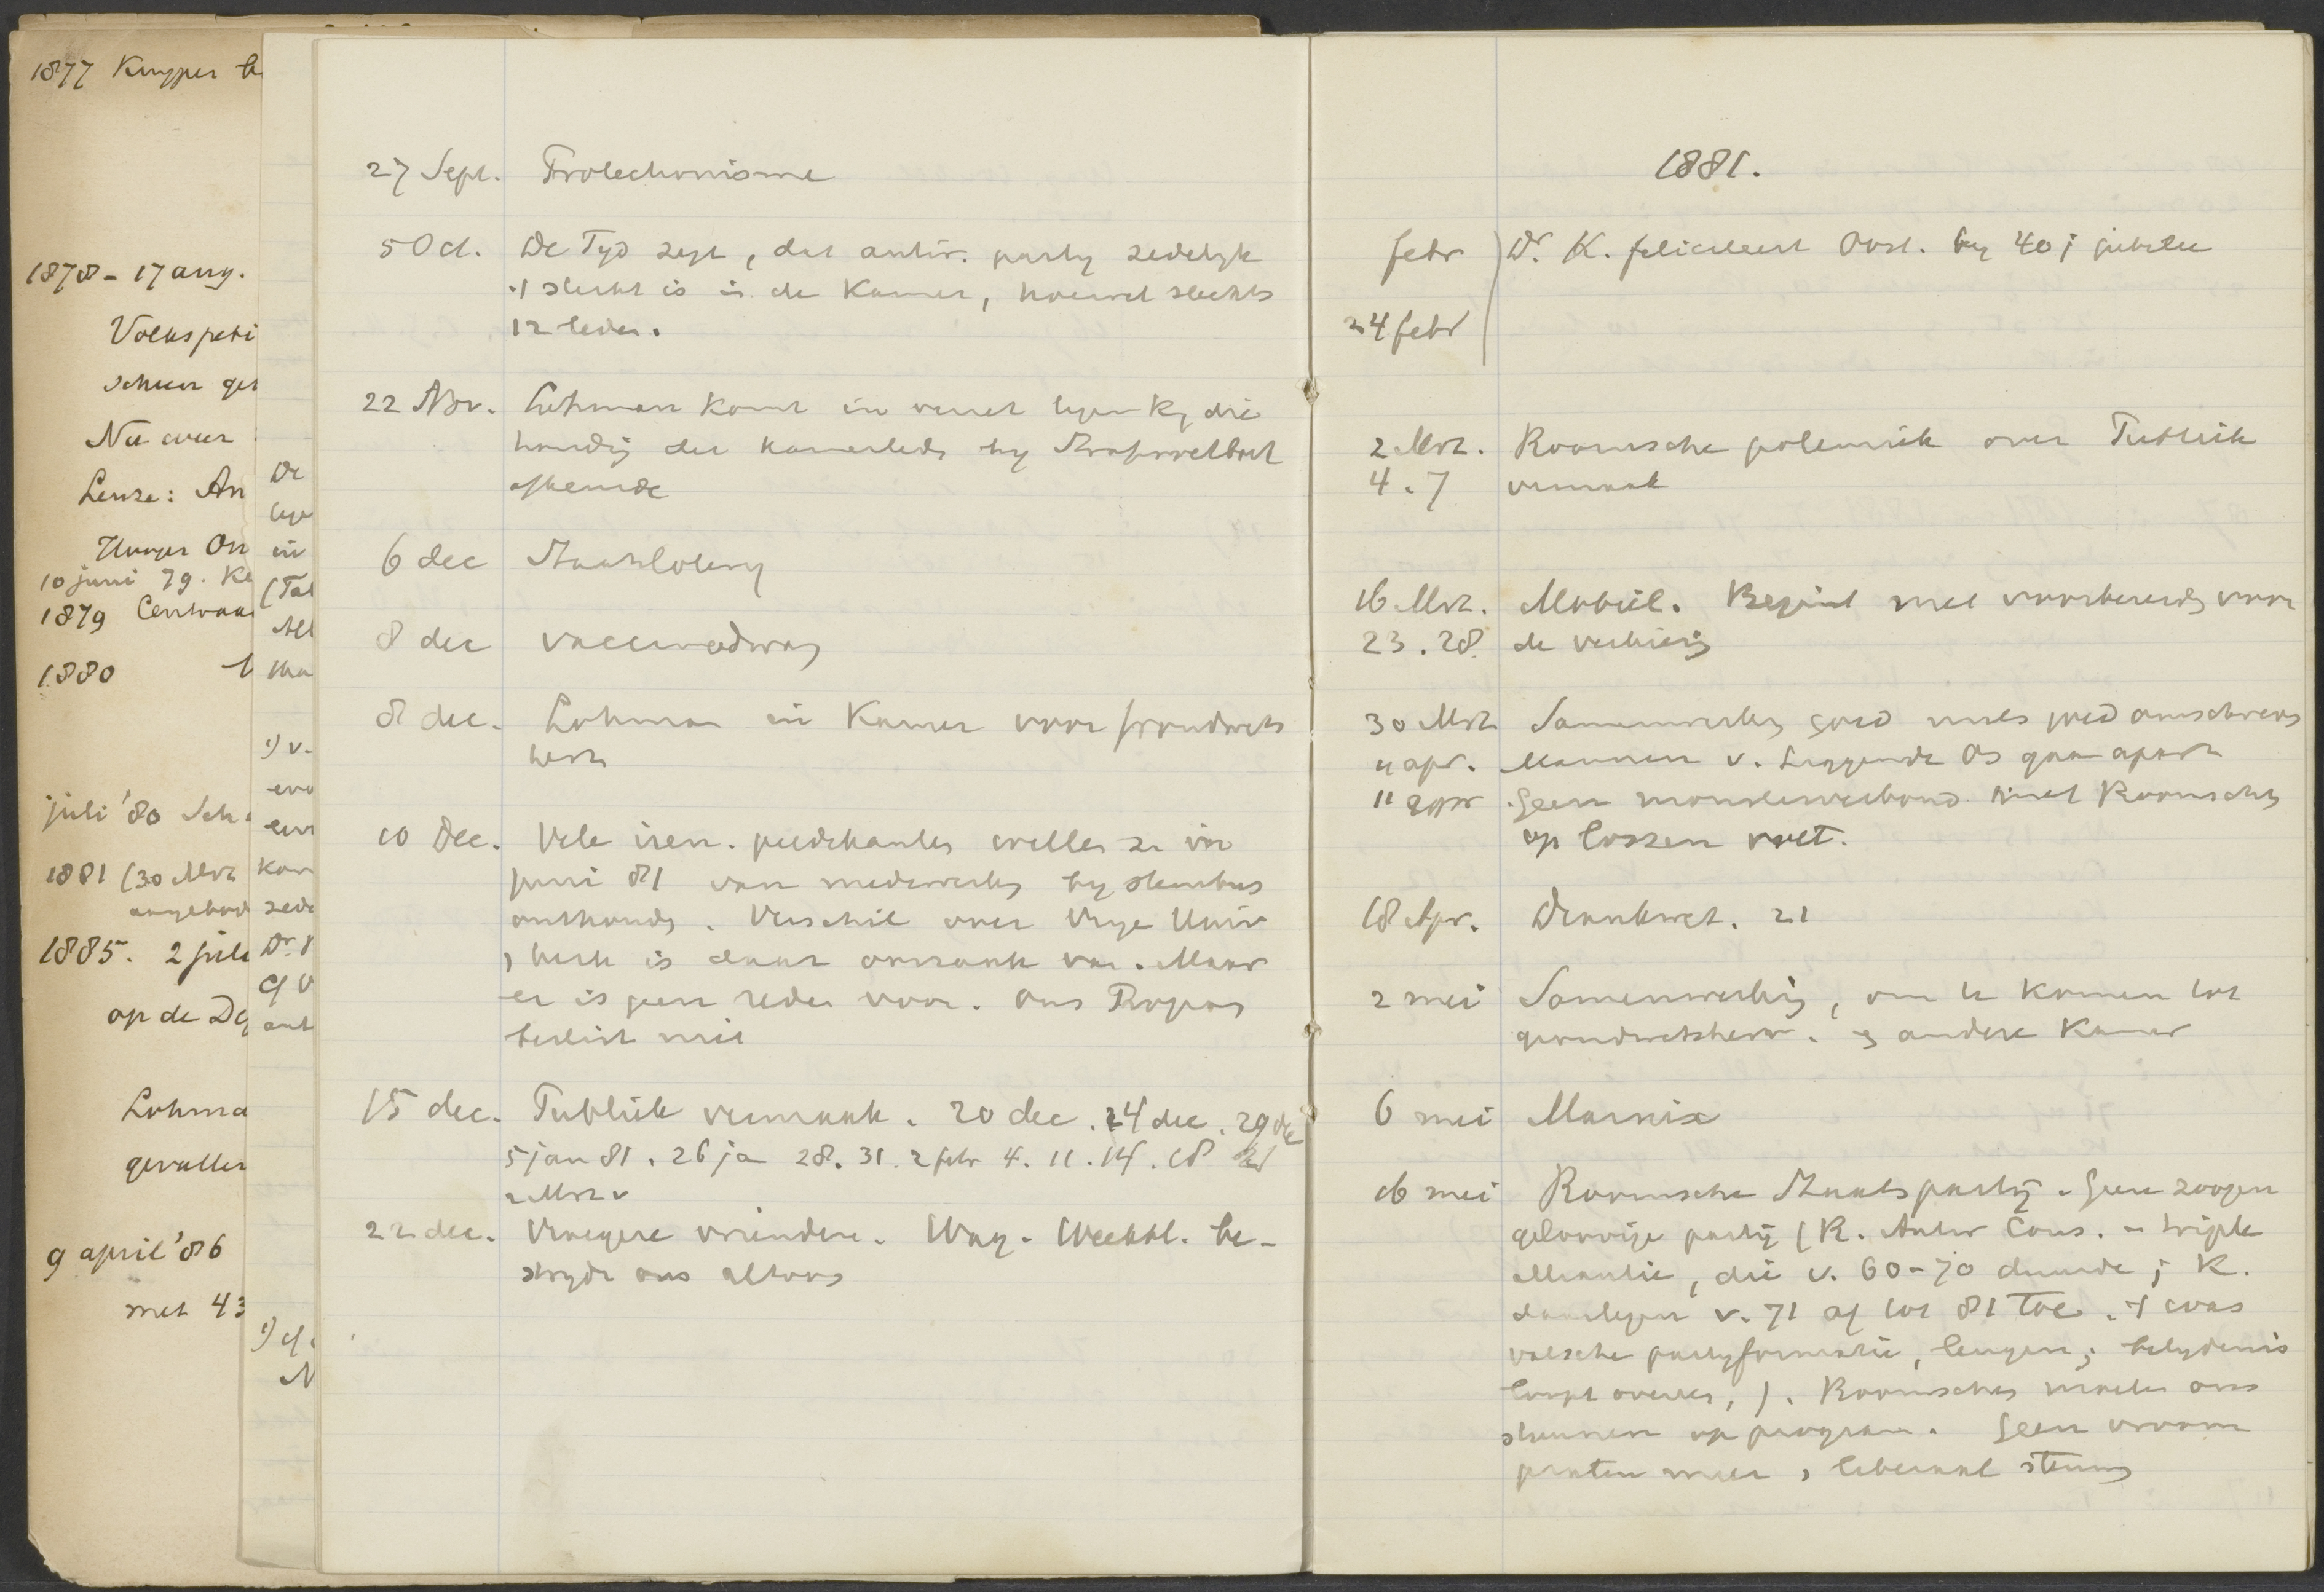 1877 Kuyper
1878 - 17 aug.
Volkspeti
Schur ges
Nu weer
Leuze: An
10 juni 79. Ke
1879 Centraa
1880
juli '80 Sch
1881 (30 Mrt
aangebod
1885. 2 juli
op de De
Lohma
gevallen
9 april '86
met 43
De
in
(Tal
All
1) v.
Kam
zede
Dr.
1) cf.
27 Sept. Protectionisme
5 Oct. De Tyd zegt, dat antir. party zedelyk
't sterkst is in de Kamer, hoewel slechts
12 leden.
22 Nov. Lohman komt in verzet tegen Ky die
houding der kamerleden by Strafwetboek
afkeurde
6 dec Staatslotery
8 dec vaccinedwang
8 dec. Lohman in Kamer voor grondwets
herz
10 Dec. Vele iren. predikanten willen ze in
juni 81 van medewerking by stembus
onthouden. Verschil over Vrye Univ
, kerk is daar oorzaak van. Maar
er is geen reden voor. Ons Program
beslist niet
15 dec. Publiek vermaak. 20 dec. 24 dec. 29 dec
5 jan 81. 26 ja 28. 31. 2 febr 4. 11. 14. 18
2 Mrt v
22 dec. Vroegere vrienden. Wag. Weekbl. be-
stryde ons altoos
1881.
febr Dr. K. feliciteert Oost. by 40 j jubilee
24 febr
2 Mrt. Roomsche polemiek over Publiek
4. 7 vermaak
16 Mrt. Mobiel. Begint met voorbereidg voor
23. 28. de verkiezg
30 Mrt Samenwerkg goed mits goed omschreven
4 apr. Mannen v. Leggende Os gaan apart
11 appr Geen monsterverbond met Roomschen
op lossen voet.
18 Apr. Drankwet. 21
2 mei Samenwerking, om te komen tot
grondwetsherz. en andere Kamer
6 mei Marnix
16 mei Roomsche Staatsparty. Geen zoogen
geloovige party (R. Antir Cons. = triple
alliantie, die v. 60-70 duurde; K.
daartegen v. 71 af tot 81 toe. 't was
valsche partyformatie, leugen; belydenis
loopt overes, ). Roomschen moeten ons
steunen op program. Geen vroom
praten meer, liberaal steunen